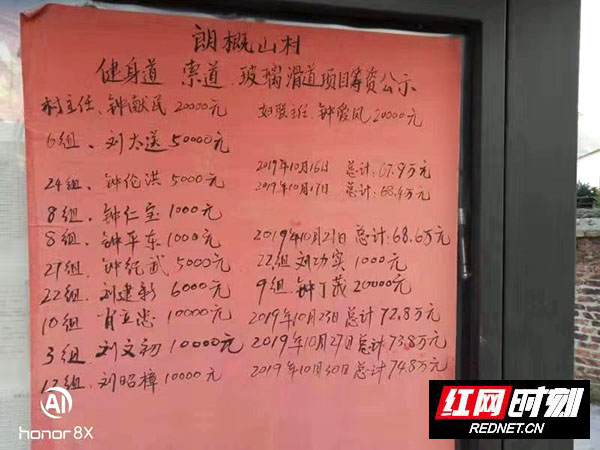 朗概山村
健身道 索道 玻璃滑道项目筹资公示
村主任、钟献民 20000元 妇联主任、钟爱凤 20000元
6组、刘太送 50000元
2019年10月16日 总计:67.9万元
24组、钟伦洪 5000元 2019年10月17日 总计:68.4万元
8组、钟仁宝 1000元
8组、钟平东 1000元 2019年10月21日 总计:68.6万元
27组、钟纪武 5000元 22组 刘功实 1000元
22组 刘建彩 6000元 9组、钟丁 20000元
10组 肖立忠 10000元 2019年10月23日 总计 72.8万元
3组、刘文初 10000元 2019年10月27日 总计 73.8万元
12组、刘昭樟 10000元 2019年10月30日 总计 74.8万元
AI
honor 8X
红网时刻
REDNET.CN